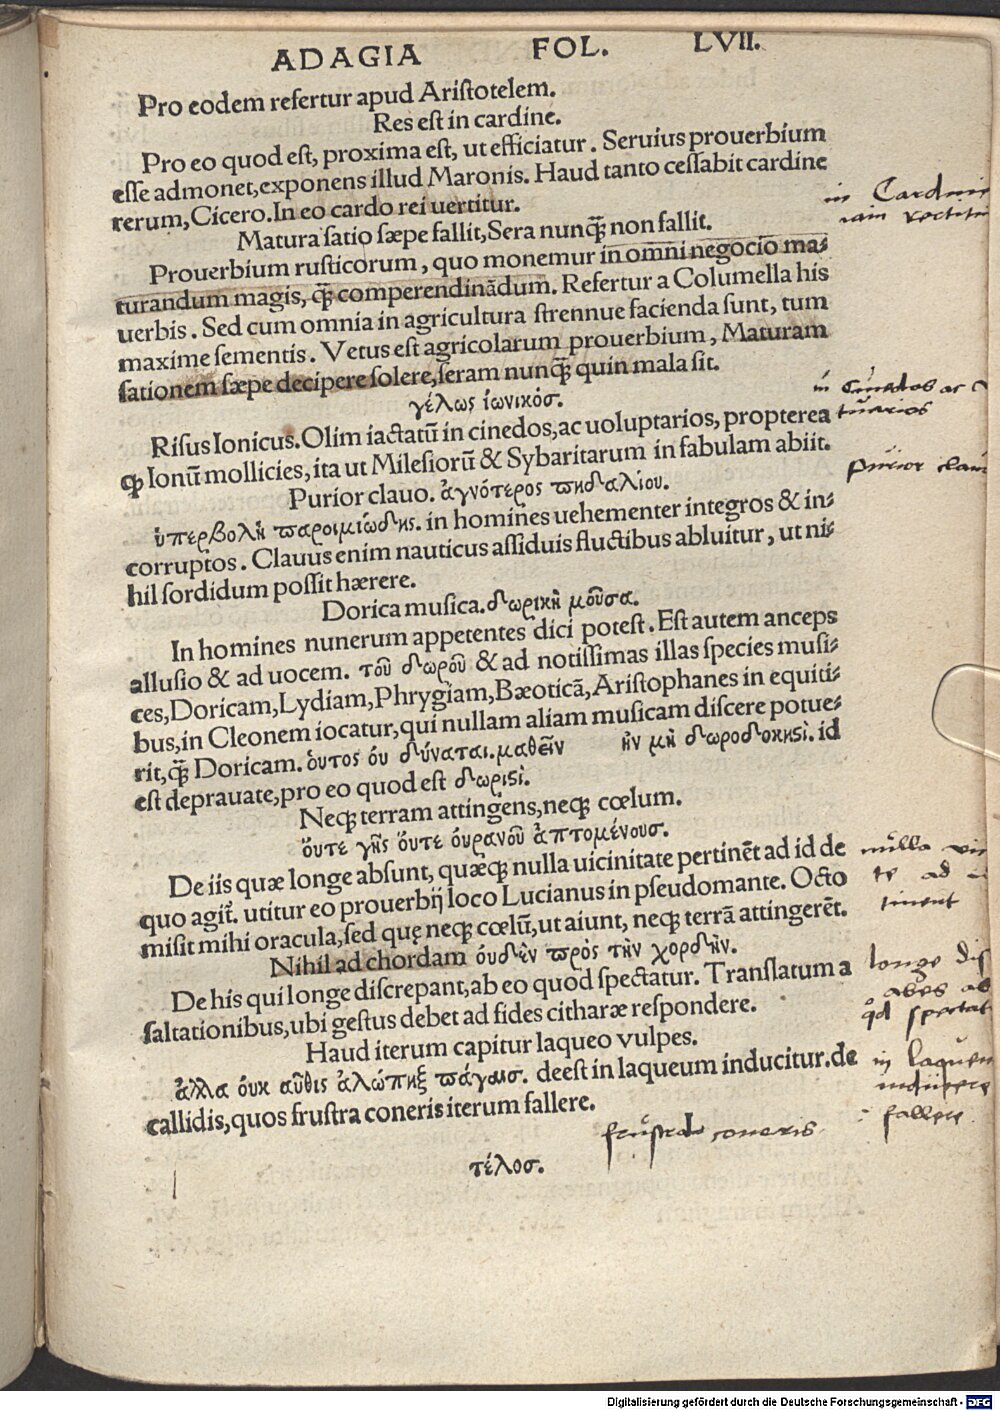 ADAGIA FOL. LVII.
Pro eodem refertur apud Aristotelem.
Res est in cardine.
Pro eo quod est, proxima est, ut efficiatur. Seruius prouerbium
esse admonet, exponens illud Maronis. Haud tanto cessabit cardine
rerum, Cicero. In eo cardo rei uertitur.
Matura satio sæpe fallit, Sera nunq̃ non fallit.
Prouerbium rusticorum, quo monemur in omni negocio ma-
turandum magis, q̃ comperendinādum. Refertur a Columella his
uerbis. Sed cum omnia in agricultura strennue facienda sunt, tum
maxime sementis. Vetus est agricolarum prouerbium, Maturam
sationem sæpe decipere solere, seram nunq̃ quin mala sit.
γέλως ἰωνικόσ.
Risus Ionicus. Olim iactatū in cinedos, ac uoluptarios, propterea
ꝙ Ionū mollicies, ita ut Milesiorū & Sybaritarum in fabulam abiit.
Purior clauo. ἁγνότερος πηδαλίου.
ὑπερβολὴ παροιμιώδης. in homines uehementer integros & in-
corruptos. Clauus enim nauticus assiduis fluctibus abluitur, ut ni-
hil sordidum possit hærere.
Dorica musica. δωρικὴ μοῦσα.
In homines nunerum appetentes dici potest. Est autem anceps
allusio & ad uocem. τοῦ δωροῦ & ad notissimas illas species musi-
ces, Doricam, Lydiam, Phrygiam, Bæoticā, Aristophanes in equiti-
bus, in Cleonem iocatur, qui nullam aliam musicam discere potue-
rit, q̃ Doricam. ὁυτος ὀυ δύναται. μαθεῖν ἢν μὴ δωροδοκησὶ. id
est deprauate, pro eo quod est δωρισὶ.
Neqꝫ terram attingens, neqꝫ cœlum.
ὄυτε γῆς ὄυτε ὀυρανοῦ ἁπτομένουσ.
De iis quæ longe absunt, quæqꝫ nulla uicinitate pertinēt ad id de
quo agit̃. utitur eo prouerbij loco Lucianus in pseudomante. Octo
misit mihi oracula, sed quę neqꝫ cœlū, ut aiunt, neqꝫ terrā attingerēt.
Nihil ad chordam ὀυδὲν πρὸς τὴν χορδὴν.
De his qui longe discrepant, ab eo quod spectatur. Translatum a
saltationibus, ubi gestus debet ad fides citharæ respondere.
Haud iterum capitur laqueo vulpes.
ἀλλα ὀυκ αὖθις ἀλώπηξ πάγαισ. deest in laqueum inducitur. de
callidis, quos frustra coneris iterum fallere.
τέλοσ.
in Cardine
in Cinedos ac
tuarios
Purior clau
nulla
te ad
tinent
longe dis
ab
qd spectat
in laqueu
inducere
fallere
frustra coneris
Digitalisierung gefördert durch die Deutsche Forschungsgemeinschaft - DFG